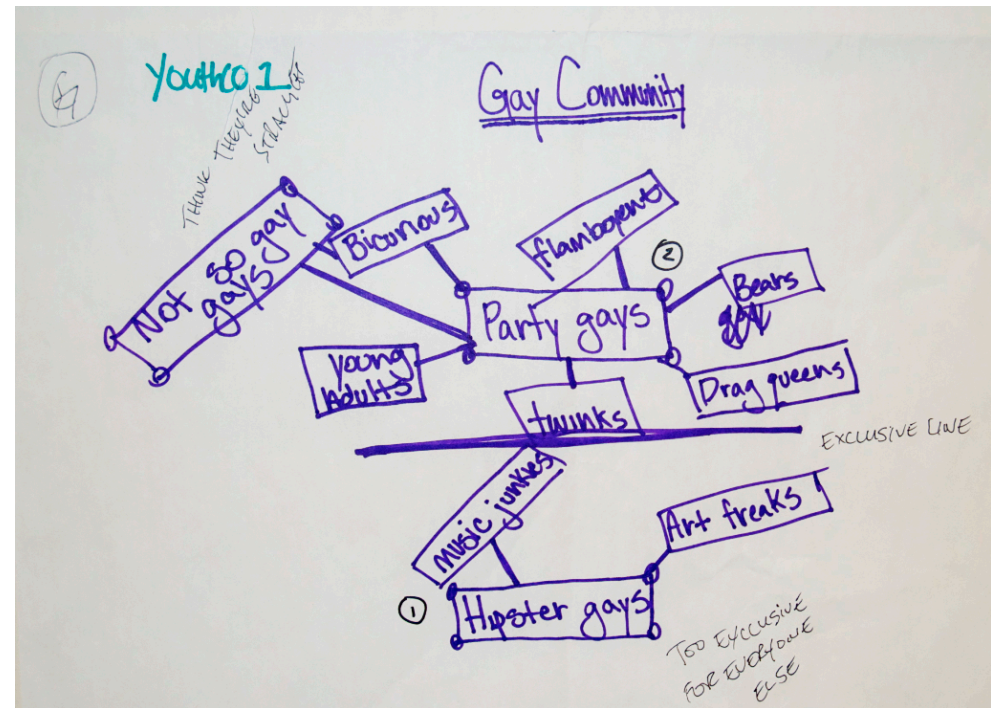 Youthco 1
Gay Community
THINK THEY'RE
STRAIGHT
Not so gay
gays
Bicurious
flamboyent
2
Party gays
Bears
gay
Young
Adults
Drag queens
twinks
EXCLUSIVE LINE
music junkies
Art freaks
1
Hipster gays
TOO EXCLUSIVE
FOR EVERYONE
ELSE